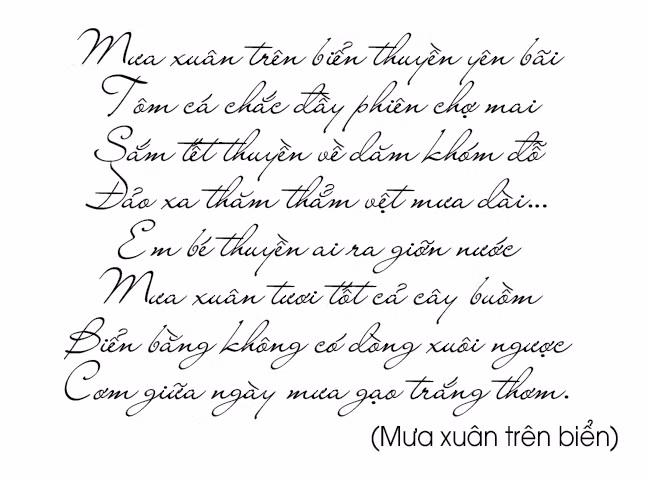 Mưa xuân trên biển thuyền yên bãi
Tôm cá chắc đầy phiên chợ mai
Sắm tết thuyền về dăm khóm đỗ
Đảo xa thăm thẳm vệt mưa dài...
Em bé thuyền ai ra giỡn nước
Mưa xuân tươi tốt cả cây buồm
Biển bằng không có dòng xuôi ngược
Cơm giữa ngày mưa gạo trắng thơm.
(Mưa xuân trên biển)